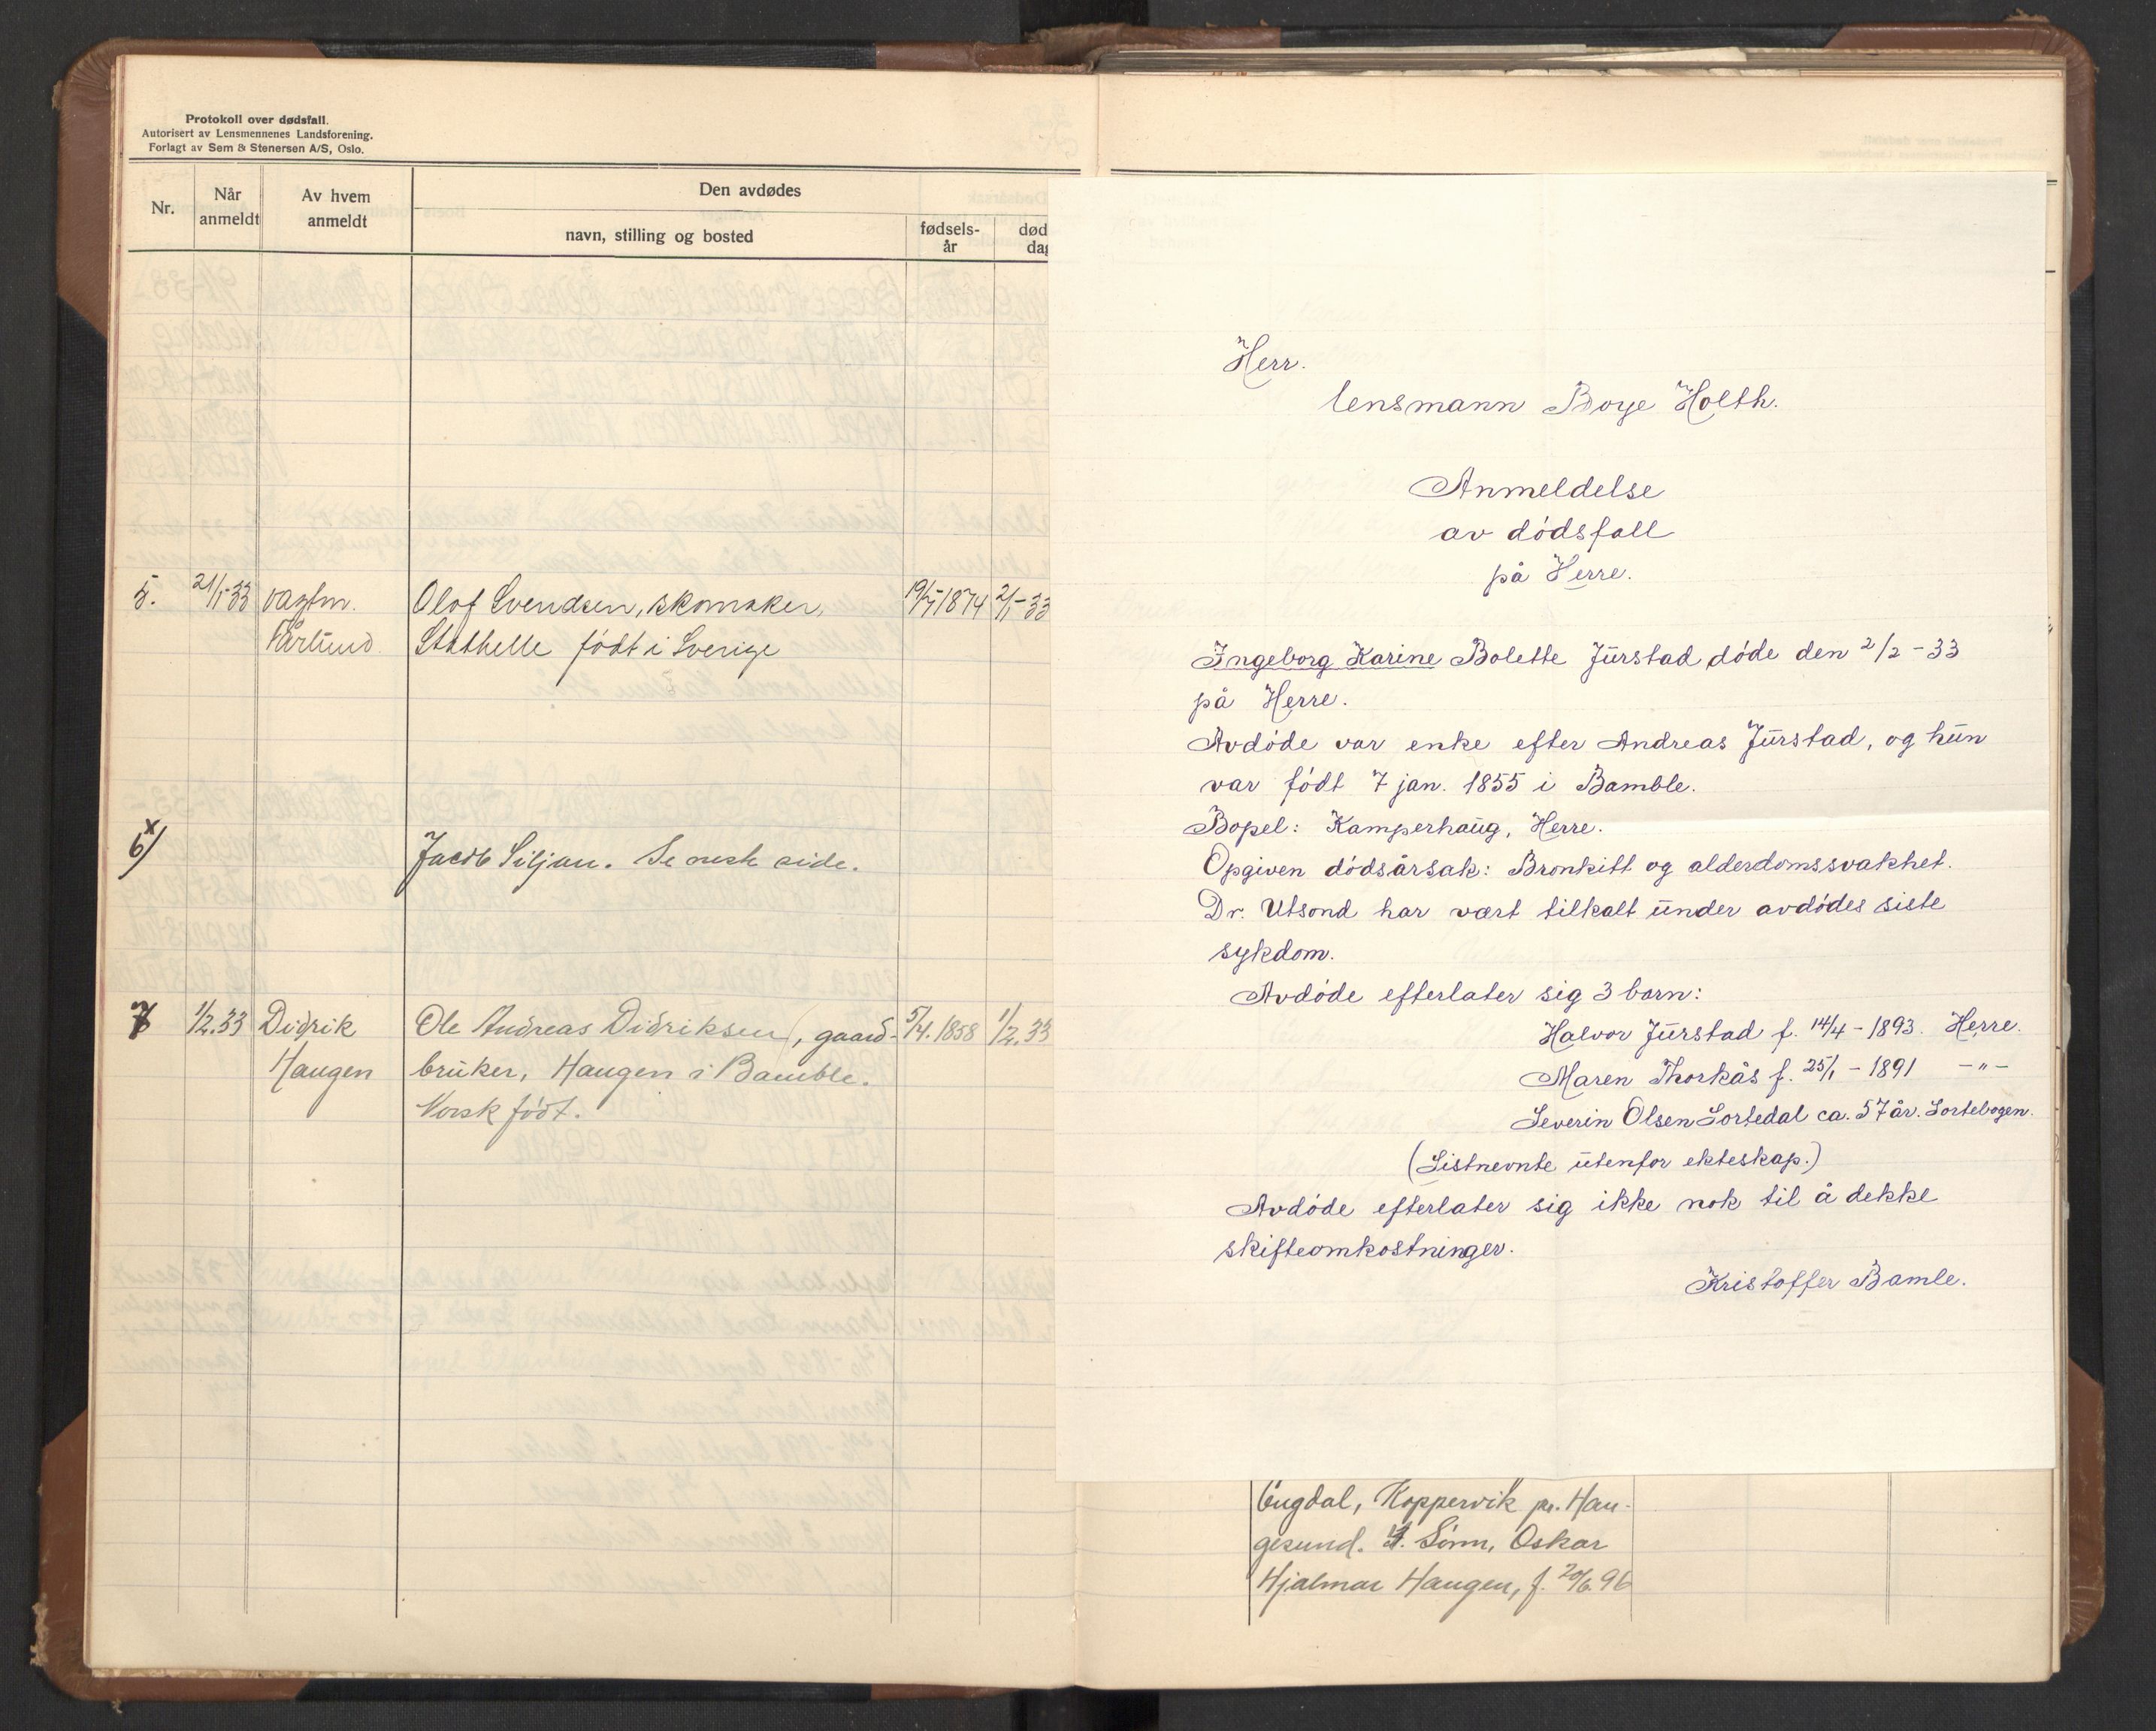 Protokoll over dødsfall.
Autorisert av Lensmennenes Landsforening.
Forlagt av Sem & Stenersen A/S, Oslo.
Nr.
Når
anmeldt
Av hvem
anmeldt
Den avdødes
navn, stilling og bosted
fødsels-
år
død
dag
5. 21/1-33 vagtm. Olof Svendsen, skomaker, 1874 2/1-33
Stathelle født i Sverige
6) x
Jacob Siljan. Se neste side.
7 1/2.33 Didrik Ole Andreas Didriksen, gaard- 5/4.1858 1/2.33
Haugen bruker, Haugen i Bamble.
Norsk født.
Herr.
lensmann Boye Holth.
Anmeldelse
av dødsfall
på Herre.
Ingeborg Karine Bolette Jūrstad døde den 2/2-33
på Herre.
Avdøde var enke efter Andreas Jūrstad, og hūn
var født 7 jan. 1855 i Bamble.
Bopel: Kamperhaūg, Herre.
Opgiven dødsårsak: Bronkitt og alderdomssvakhet.
Dr. Utsond har vært tilkalt ūnder avdødes siste
sykdom.
Avdøde efterlater sig 3 barn:
Halvor Jūrstad f. 14/4-1893. Herre.
Maren Thorkås f. 25/1-1891 -"-
Severin Olsen Sortedal ca. 57 år. Sortebogen.
(Sistnevnte ūtenfor ekteskap.)
Avdøde efterlater sig ikke nok til å dekke
skifteomkostninger.
Kristoffer Bamle.
Engdal, Koppervik pr. Hau-
gesund. 4. Sønn, Oskar
Hjalmar Haugen, f. 20/6.96